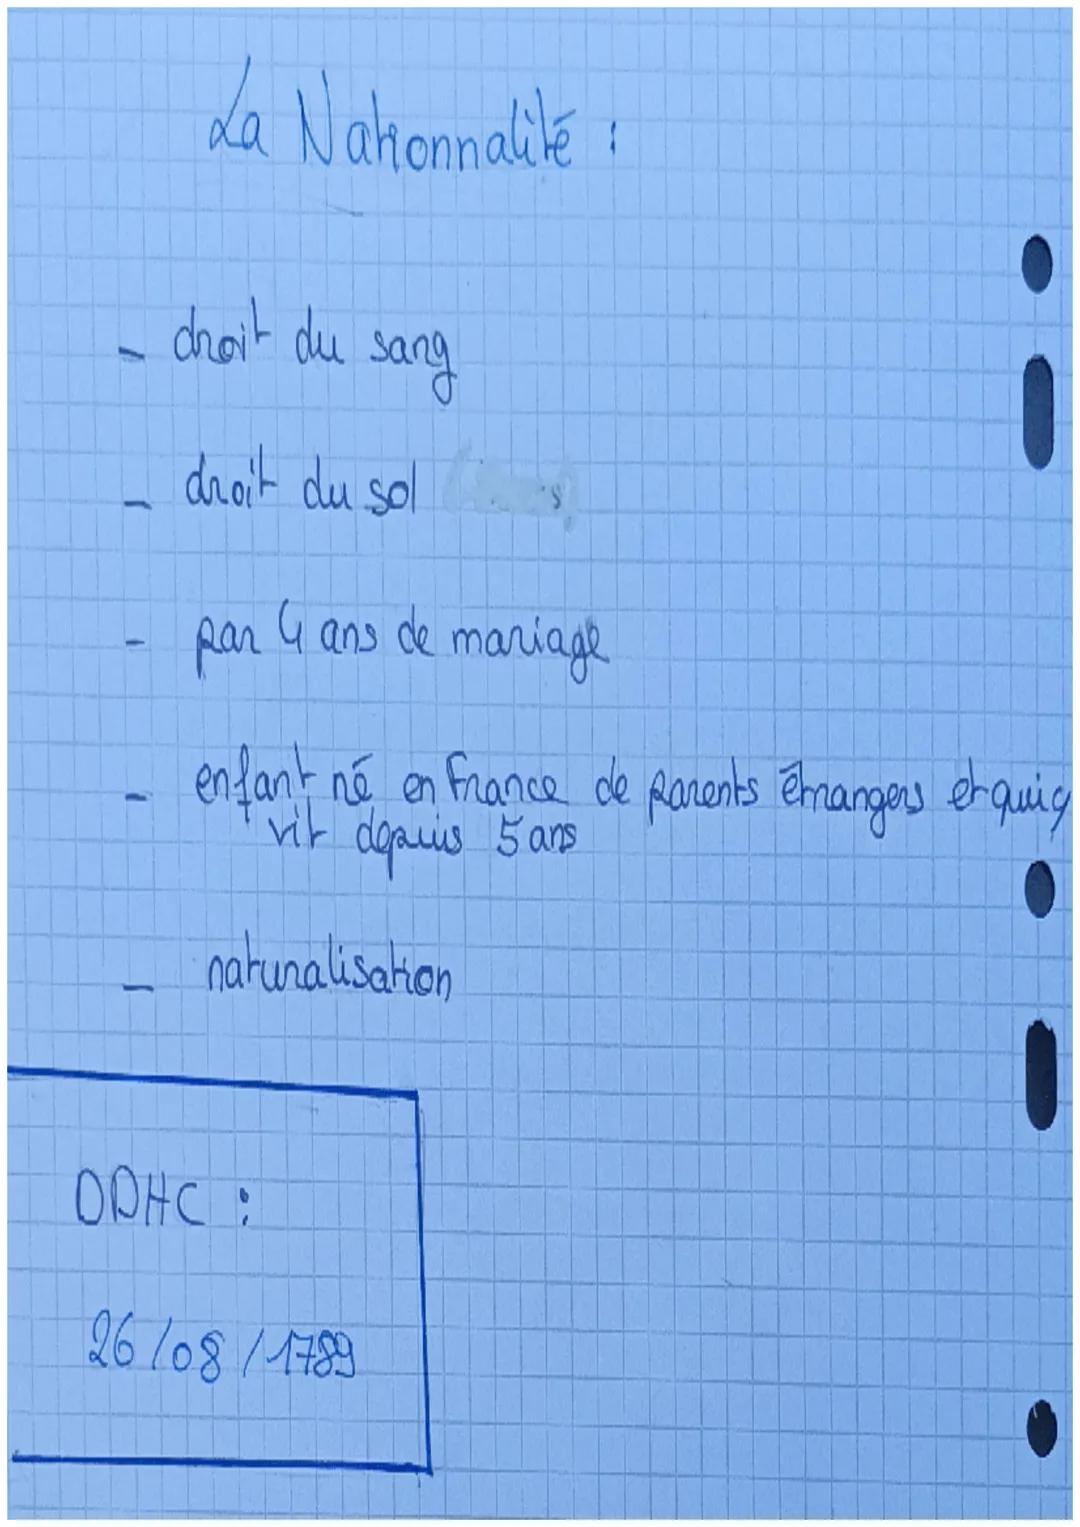 La Nationnalité :
- droit du sang
- droit du sol
- par 4 ans de mariage
- enfant né en France de parents étrangers et qui y
vit depuis 5 ans
- naturalisation
DDHC :
26/08/1789